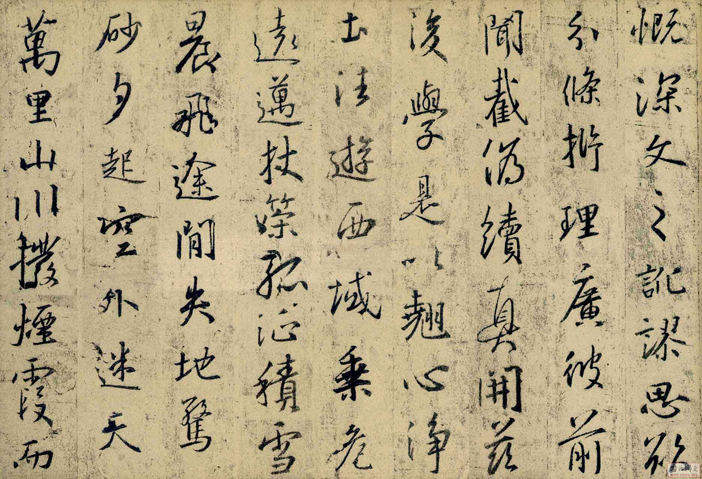 慨深文之訛謬思欲
分條析理廣彼前
聞截偽續真開茲
後學是以翹心淨
土法遊西域乘危
遠邁杖策孤征積雪
晨飛途閒失地驚
砂夕起空外迷天
萬里山川撥煙霞而